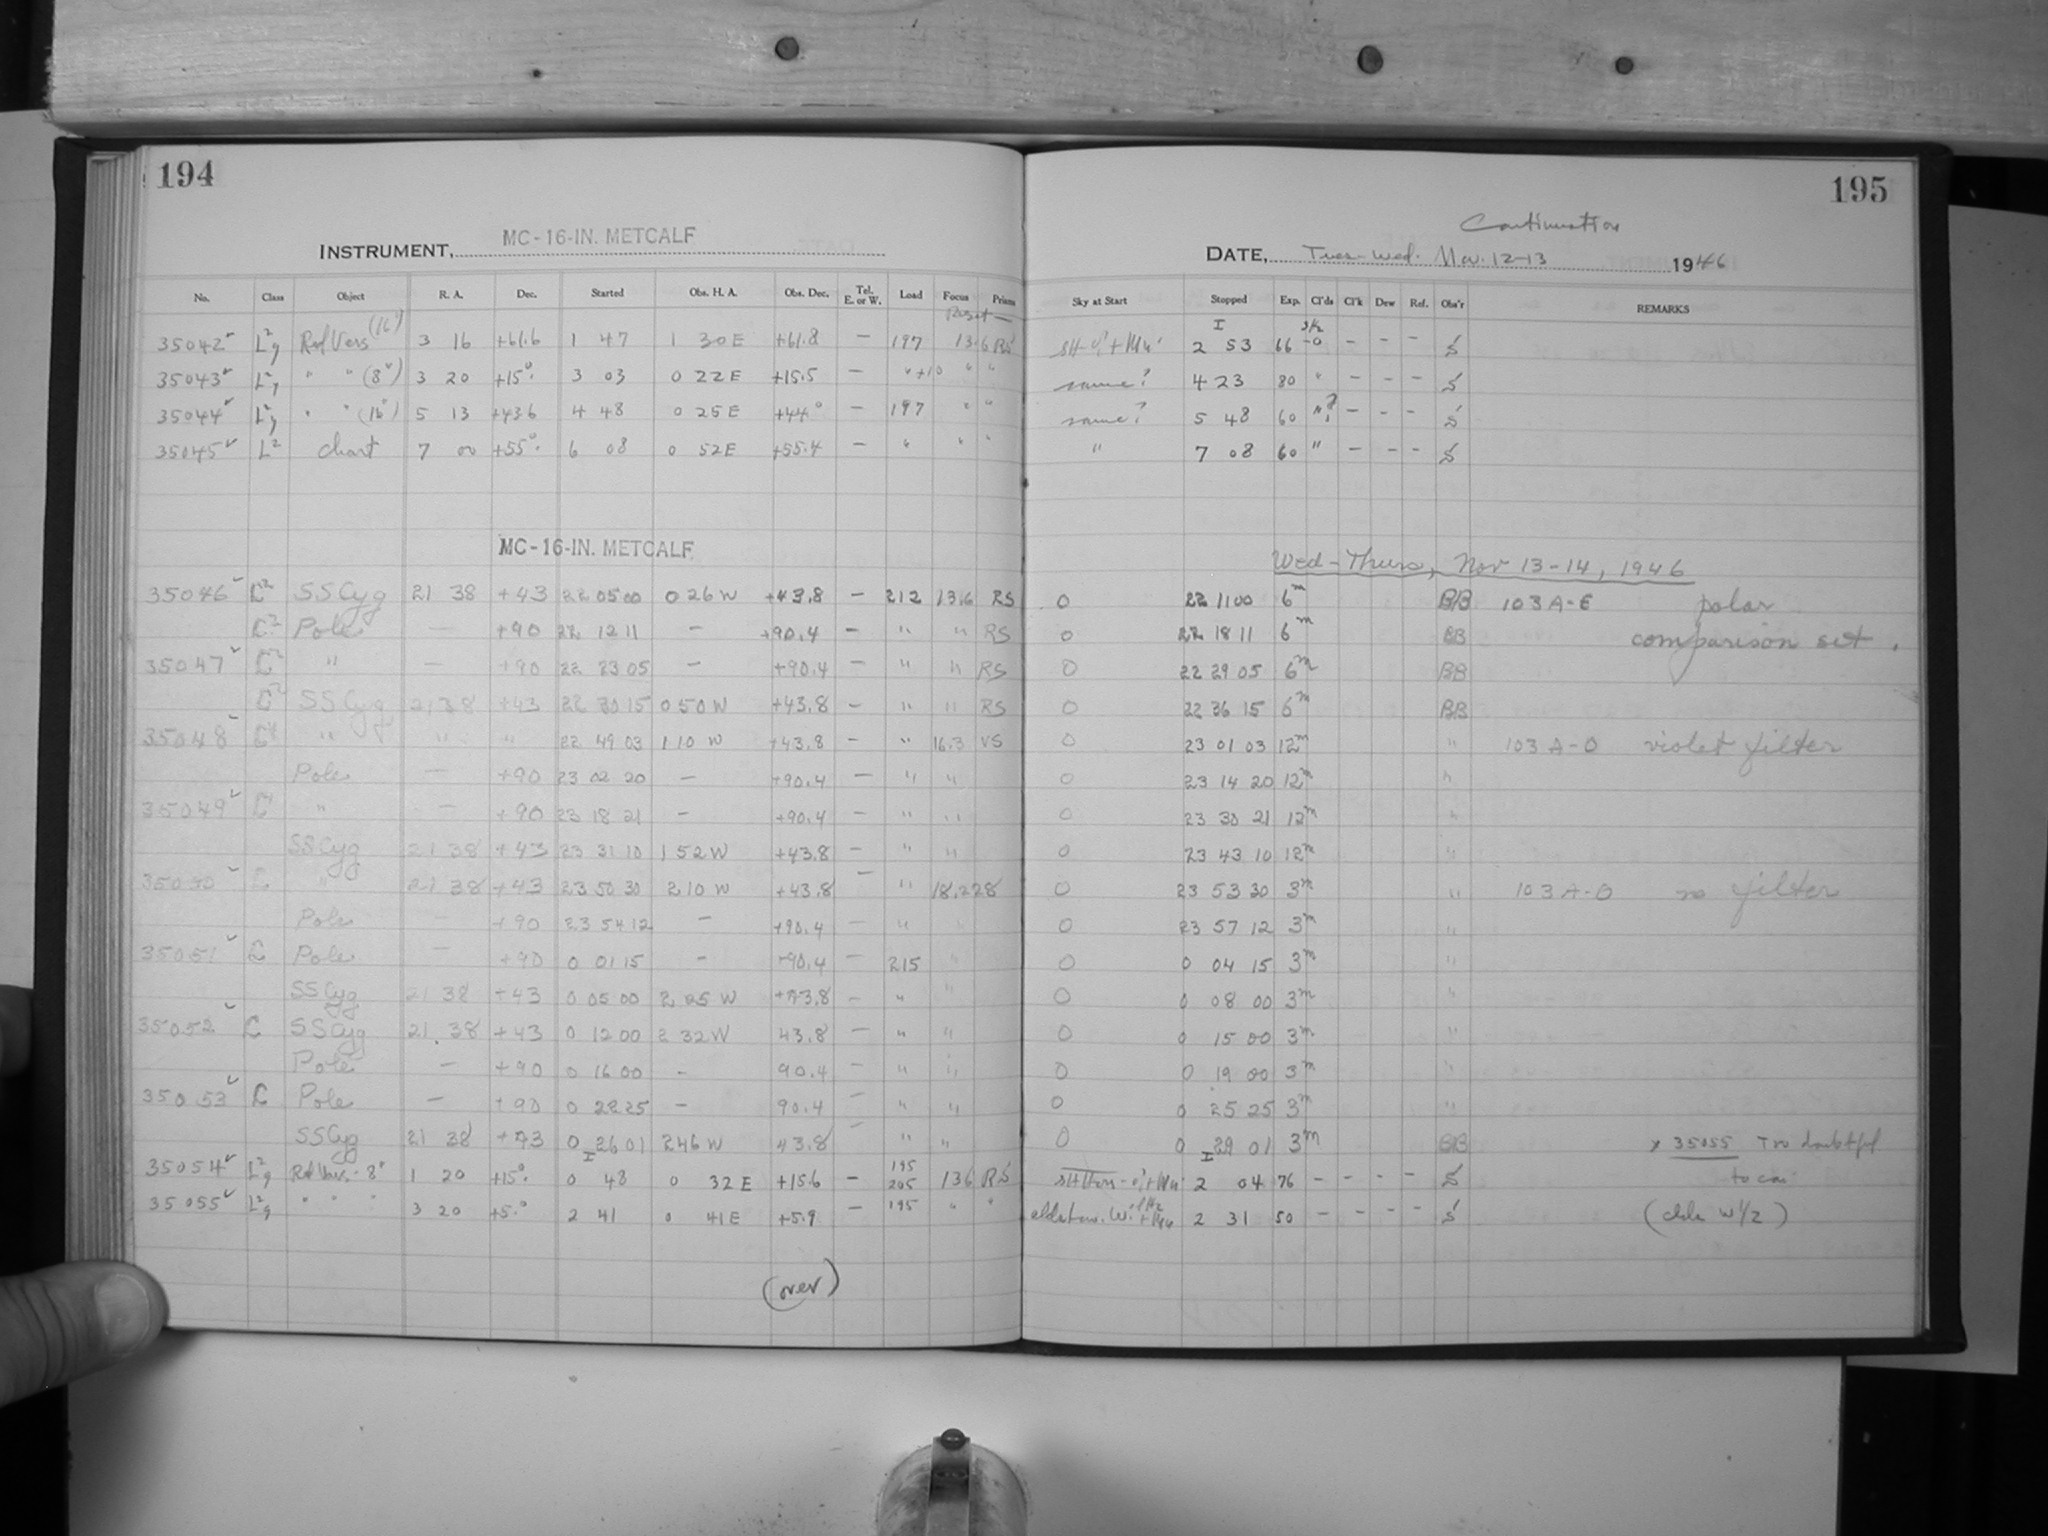 194
195
INSTRUMENT, MC-16-IN. METCALF
Continuation
DATE, Tues-Wed. Nov. 12-13 1946
No. Class Object R. A. Dec. Started Obs. H. A. Obs. Dec. Tel. E. or W. Load Focus Prism Sky at Start Stopped Exp. Cl'ds Cl'k Dew Ref. Obs'r REMARKS
35042 (16") 3 16 +61.6 1 47 1 30 E +61.8 — 197 13.6 RS 2 53 66 - - - S
35043 " " (8") 3 20 +15° 3 03 0 22 E +15.5 — " +10 " " same? 4 23 80 " - - - S
35044 " " (16") 5 13 +43.6 4 48 0 25 E +44° — 197 " " same? 5 48 60 "? - - - S
35045 L² chart 7 00 +55° 6 08 0 52 E +55.4 — " " " " 7 08 60 " - - - S
MC-16-IN. METCALF
Wed-Thurs, Nov 13-14, 1946
35046 C² SS Cyg 21 38 +43 22 05 00 0 26 W +43.8 — 212 13.6 RS 0 22 11 00 6m BB 103 A-E polar
C² Pole — +90 22 12 11 — +90.4 — " " RS 0 22 18 11 6m BB comparison set.
35047 C² " — +90 22 23 05 — +90.4 — " " RS 0 22 29 05 6m BB
C² SS Cyg 21 38 +43 22 30 15 0 50 W +43.8 — " " RS 0 22 36 15 6m BB
35048 " " " 22 49 03 1 10 W +43.8 — " 16.3 VS 0 23 01 03 12m " 103 A-O violet filter
Pole — +90 23 02 20 — +90.4 — " " 0 23 14 20 12m "
35049 " — +90 23 18 21 — +90.4 — " " 0 23 30 21 12m "
SS Cyg 21 38 +43 23 31 10 1 52 W +43.8 — " " 0 23 43 10 12m "
35050 C " 21 38 +43 23 50 30 2 10 W +43.8 — " 0 23 53 30 3m " 103 A-O no filter
Pole — +90 23 54 12 — +90.4 — " " 0 23 57 12 3m "
35051 C Pole — +90 0 01 15 — +90.4 — 215 " 0 0 04 15 3m "
SS Cyg 21 38 +43 0 05 00 2 25 W +43.8 — " " 0 0 08 00 3m "
35052 C SS Cyg 21 38 +43 0 12 00 2 32 W 43.8 — " " 0 0 15 00 3m "
Pole — +90 0 16 00 - 90.4 — " " 0 0 19 00 3m "
35053 C Pole — +90 0 22 25 — 90.4 — " " 0 0 25 25 3m "
SS Cyg 21 38 +43 0 26 01 2 46 W 43.8 — " " 0 0 29 01 3m BB x 35055 Too doubtful
35054 1 20 +15° 0 48 0 32 E +15.6 — 195 205 13.6 RS 2 04 76 - - - - S
35055 " " " 3 20 +5.° 2 41 0 41 E +5.9 — 195 " " 2 31 50 - - - - S
(over)